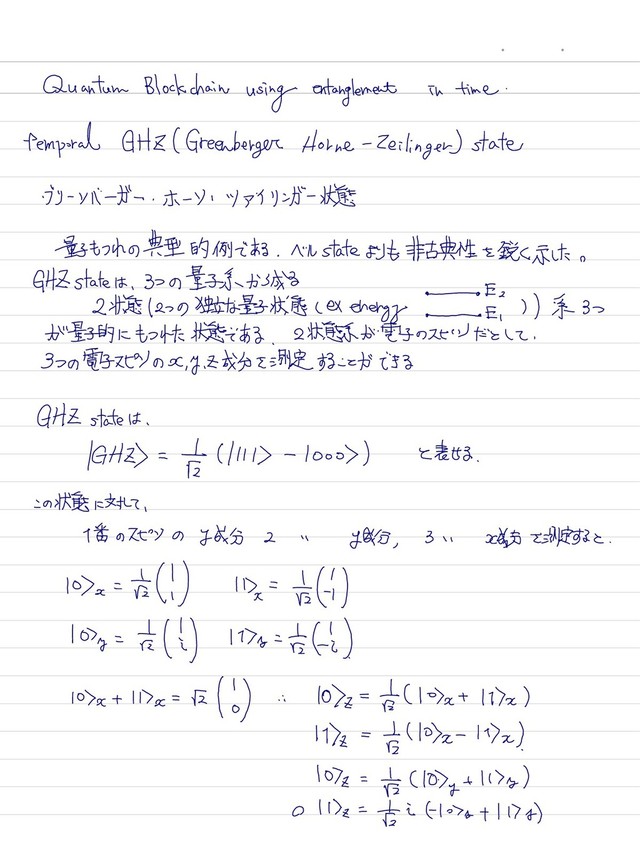 Quantum Blockchain using entanglement in time.
temporal GHZ (Greenberger Horne-Zeilinger) state
グリーンバーガー・ホーン・ツァイリンガー状態
量子もつれの典型的例である。ベル state よりも非古典性を鋭く示した。
GHZ state は、3つの量子系から成る
2状態(2つの独立な量子状態(ex energy E₂ E₁))系 3つ
が量子的にもつれた状態である。2状態系が電子のスピンだとして、
3つの電子スピンのx,y,z成分を測定することができる
GHZ state は、
|GHZ> = 1/√2 (|111> - |000>) と表せる。
この状態に対して、
1番のスピンの y成分 2 〃 y成分, 3 〃 x成分を測定すると、
|0>x = 1/√2 (1 1) |1>x = 1/√2 (1 -1)
|0>y = 1/√2 (1 i) |1>y = 1/√2 (1 -i)
|0>x + |1>x = √2 (1 0) ∴ |0>z = 1/√2 (|0>x + |1>x)
|1>z = 1/√2 (|0>x - |1>x)
|0>z = 1/√2 (|0>y + |1>y)
○ |1>z = 1/√2 i (-|0>y + |1>y)